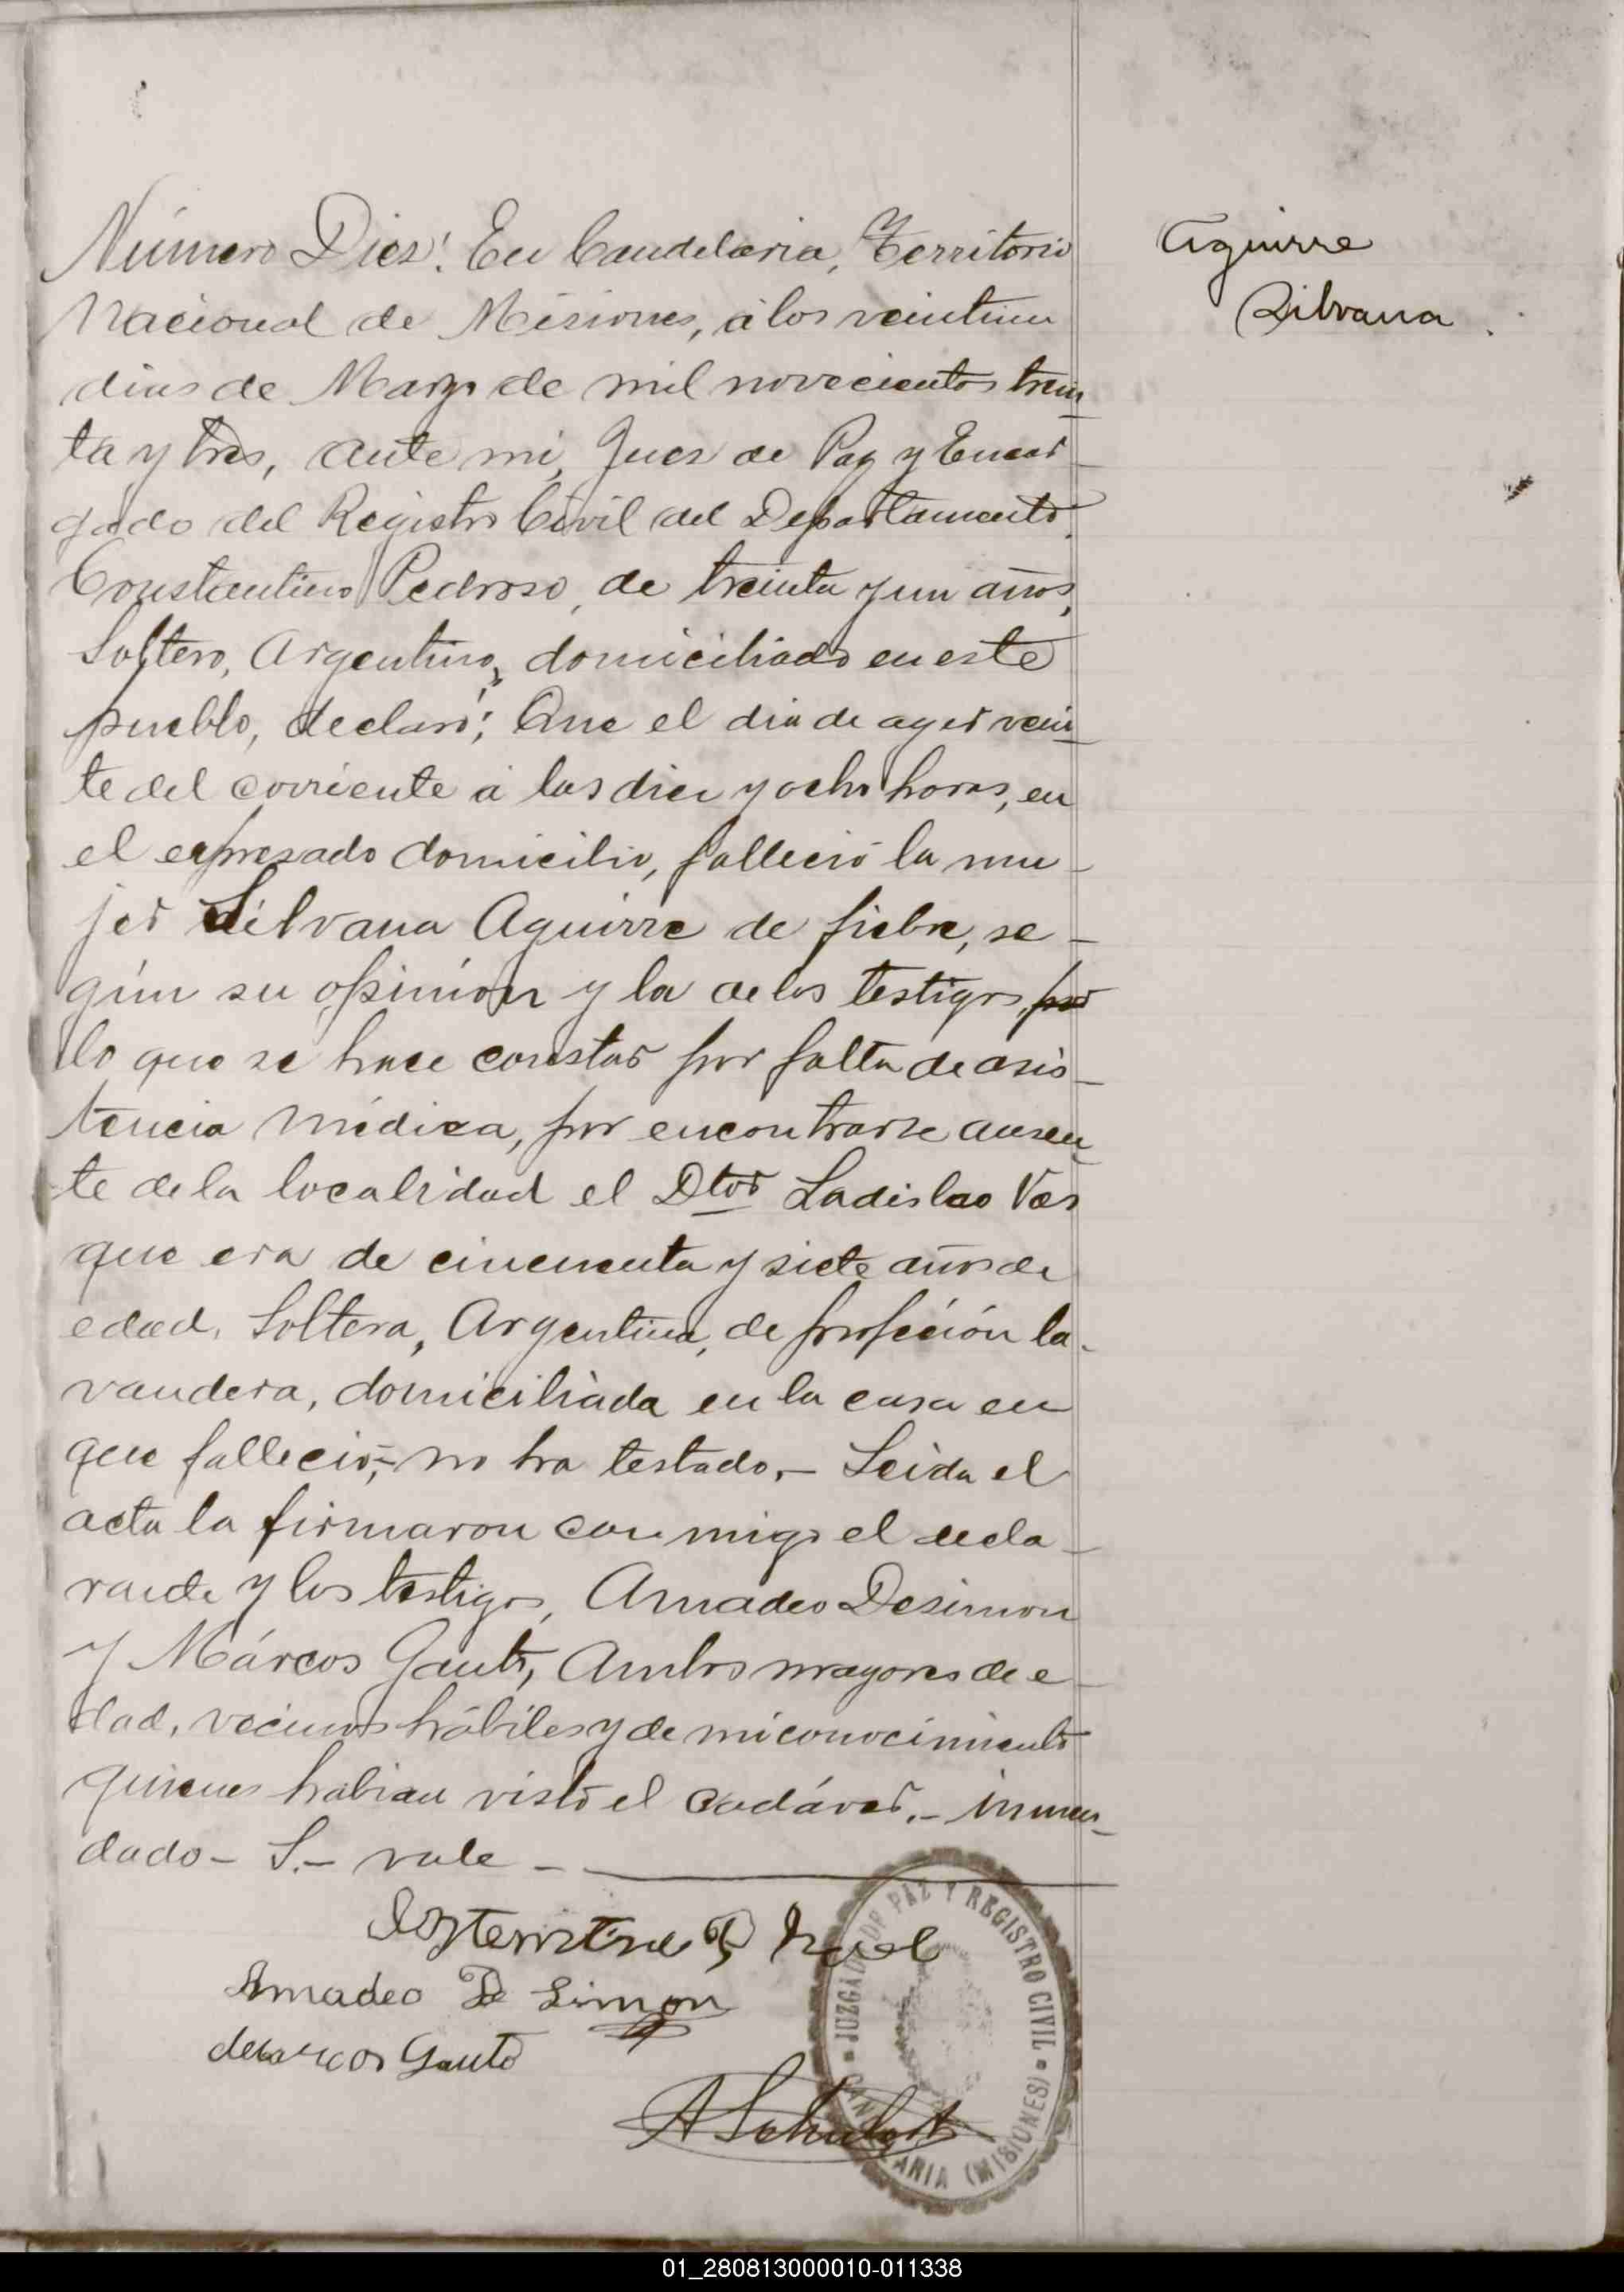 Número Diez: En Candelaria, Territorio
Nacional de Misiones, á los veintiun
dias de Marzo de mil novecientos trein-
ta y tres, ante mi, Juez de Paz y Encar-
gado del Registro Civil del Departamento.
Constantino Pedroso, de treinta y un años,
Soltero, Argentino, domiciliado en este
pueblo, declaró; Que el dia de ayer vein-
te del corriente á las diez y ocho horas, en
el expresado domicilio, falleció la mu-
jer Silvana Aguirre de fiebre, se-
gún su opinión y la de los testigos, por
lo que se hace constar por falta de asis-
tencia médica, por encontrarse ausen-
te de la localidad el Dtor Ladislao
que era de cincuenta y siete años de
edad, Soltera, Argentina, de profeción la-
vandera, domiciliada en la casa en
que falleció;- no ha testado.- Leida el
acta la firmaron conmigo el decla-
rante y los testigos, Amadeo Desimon
y Márcos Gauto, Ambos mayores de e-
dad, vecinos hábiles y de mi conocimiento
quienes habian visto el cadáver.- inmen-
dado - S.- vale -
Amadeo De Simon
Marcos Gauto
A Schubert
JUZGADO DE PAZ Y REGISTRO CIVIL
CANDELARIA (MISIONES)
Aguirre
Silvana.
01_280813000010-011338